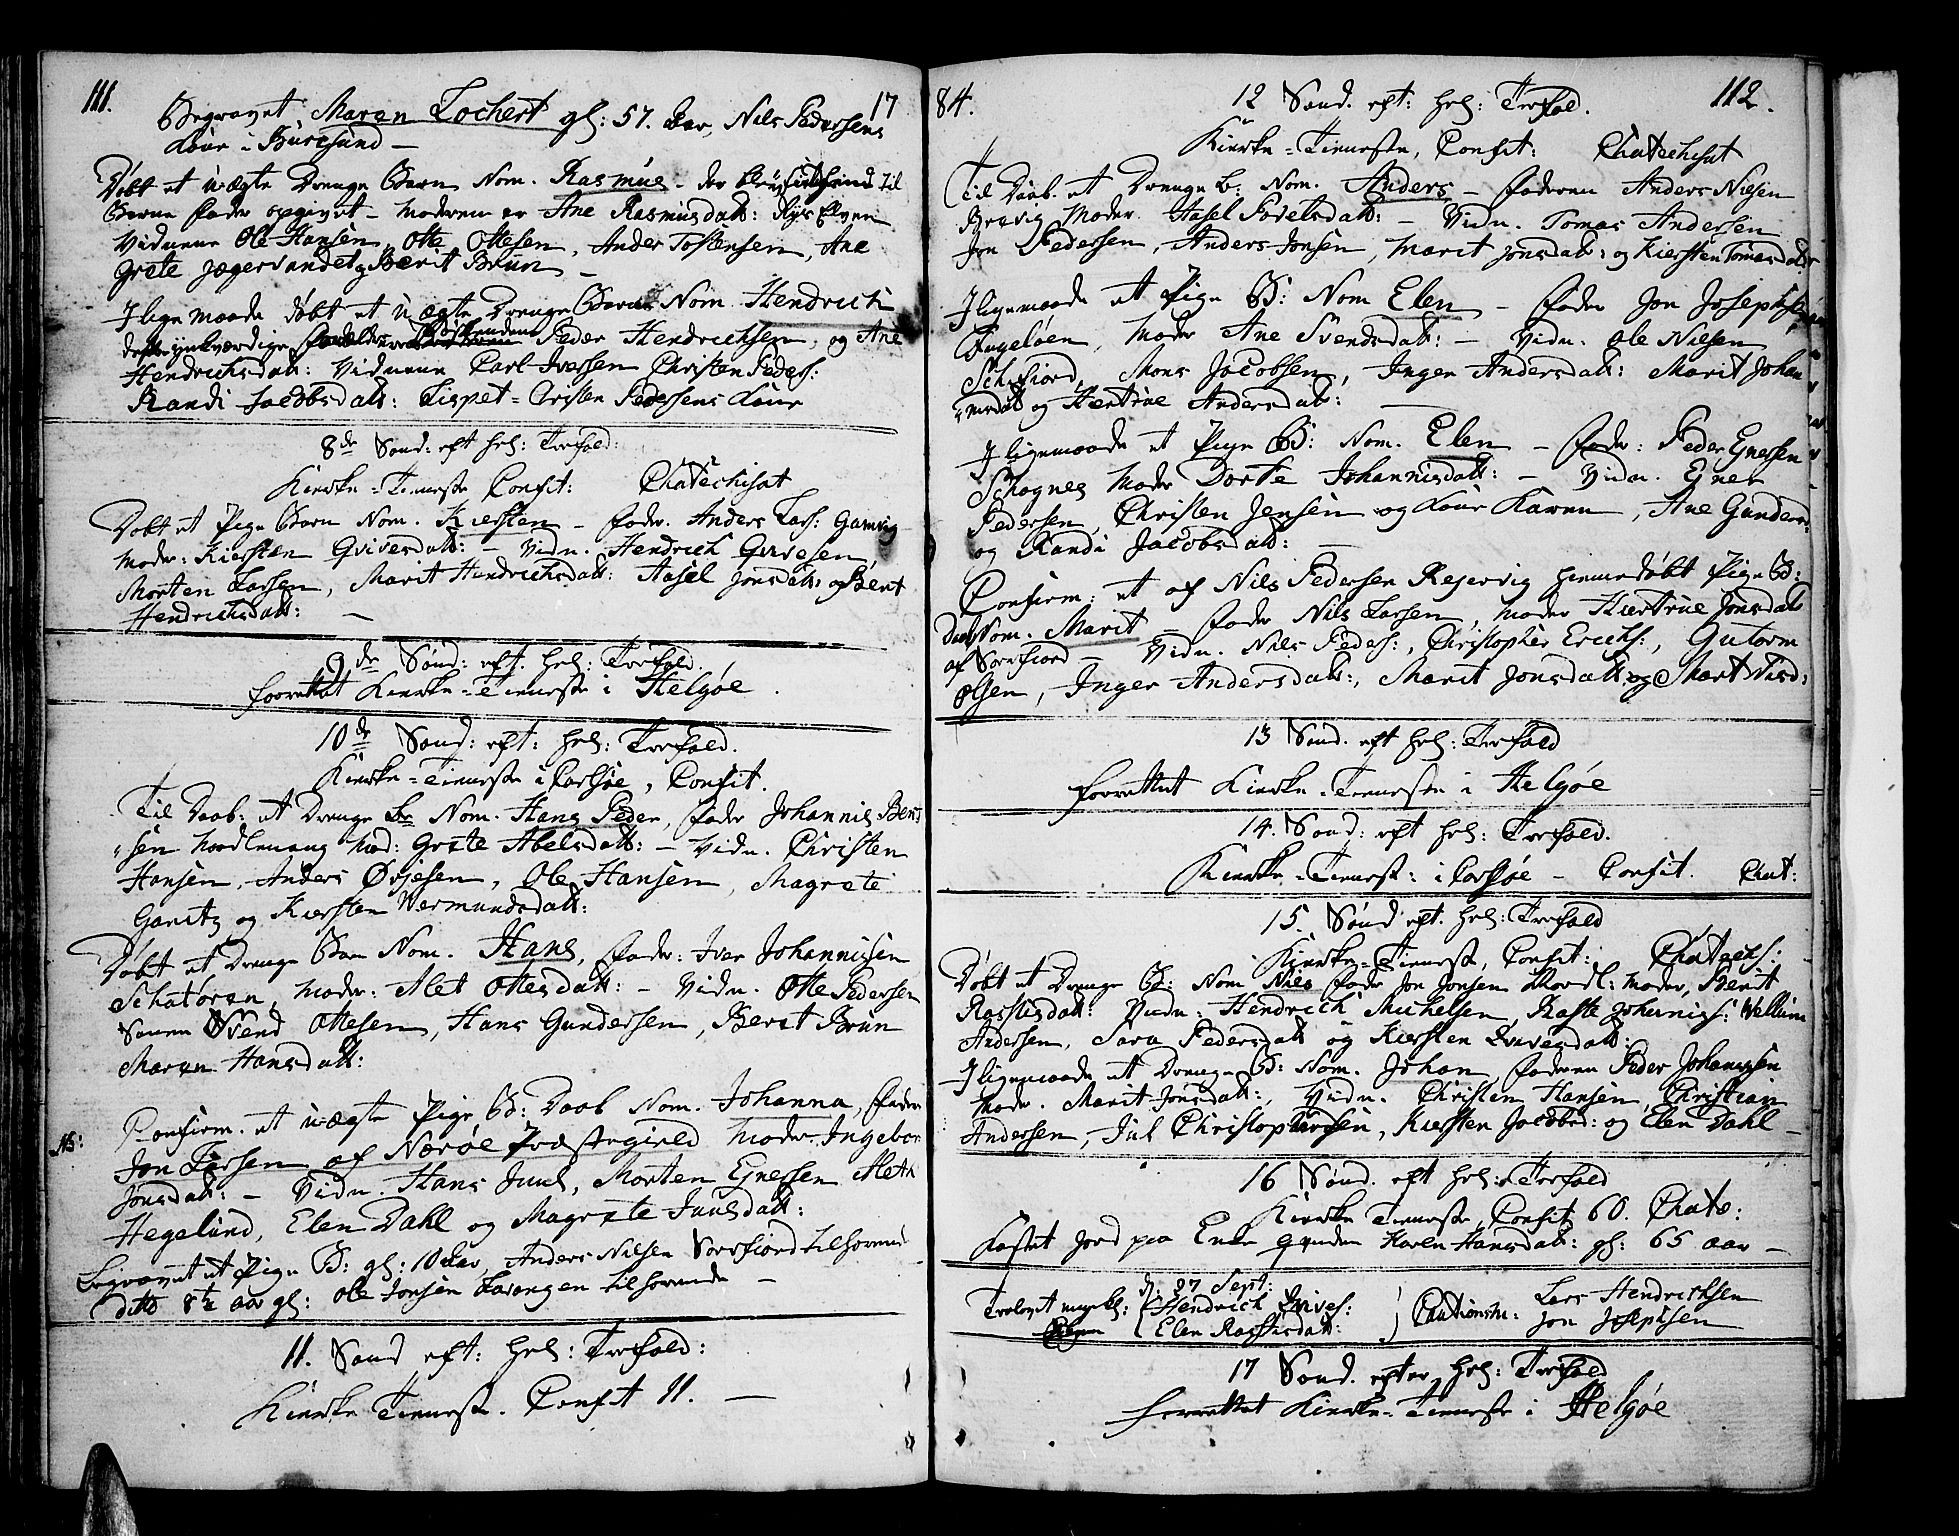 111. 17
Begravet Maren Lochert gl: 57. Aar, Nils Pedersens
Kone i Buresund —
Døbt et uægte Drenge Barn Nom. Rasmus - der til
Barne Fader opgivet - Moderen er Ane Rasmusdatt: Rÿs Elven
Vidnerne Ole Hansen, Otte Ottesen, Ander Tostensen, Ane
Grete Jægervandet, Berit Brun —
I lige maade døbt et uægte Drenge Barn Nom. Hendrich
Peder Hendrichsen, og Ane
Hendrichsdatt: Vidnerne Carl Iversen Christen Peders:
Randi Jacobsdatt: Lispet - Cristen Pedersens Kone
8de Sønd: eft hel: Trefold:
Kirke-Tieneste Confit: Chatechisat
Døbt et Pige Barn Nom. Kiersten — Fader. Anders Lars: Gamvig
Moder: Kiersten Qvivesdatt: — Vidn. Hendrich Qvivesen,
Morten Larsen, Marit Hendrichsdatt: Aasel Jonsdatt: og Berit
Hendrichsdatt: —
9de Sønd: eft. hel: Trefold.
forrettet Kirke-Tieneste i Helgøe.
10de Sønd: eft: hel: Trefold.
Kirke-Tieneste i Carlsøe, Confit.
Til Daab: et Drenge Br Nom. Hans Peder, Fader Johannis Bent
"sen Nordlenang Mod: Grete Abelsdatt: — Vidn. Christen
Hansen, Anders Ørjesen, Ole Hansen, Magrete
Garitz og Kiersten Vermundsdatt:
Døbt et Drenge Barn Nom. Hans, Fader: Iver Johannisen
Schatøren, Moder: Alet Ottesdatt: — Vidn. Otte Pedersen
Svend Ottesen, Hans Gundersen, Berit Brun
Maren Hansdatt:
NB: Confirm. et uægte Pige B: Daab Nom. Johanna, Fader
Jon Larsen af Nærøe Præstegield Moder Ingebor
Jonsdatt: — Vidn. Hans Juul, Morten Enessen Aleth
Hegelund, Elen Dahl og Magrete Juulsdatt:
Begravet et Pige B: gl: 10 Aar, Anders Nilsen Sørfiord tilhørende
ditto 8½ Aar gl: Ole Jonsen Lavangen tilhørende —
11. Sønd eft: hel: Trefold:
Kirke Tieneste. Confit 11. —
84. 112.
12 Sønd. eft: hel: Trefol.
Kirke-Tieneste, Confit: Chatechisat
Til Daab. et Drenge B: Nom. Anders — Faderen Anders Nilsen
Brevig Moder. Aasel Povelsdatt: — Vidn. Tomas Andersen
Jon Pedersen, Anders Jonsen, Marit Jonsdatt: og Kiersten Tomasdatt
I ligemaade et Pige B: Nom Elen — Fader Jon Josephsen
Ingeløen, Moder Ane Svendsdatt: — Vidn. Ole Nilsen
Mons Jacobsen, Inger Andersdatt: Marit Johan
"nesdatt og Kiertrue Andersdatt:
I ligemaade et Pige B: Nom. Elen — Fader: Peder Enessen
Schognes Moder Dorte Johannisdatt: — Vidn. Ener
Pedersen, Christen Jensen og Kone Karen, Ane Gunders:
og Randi Jacobsdatt: —
Confirm: et af Nils Pedersen Rejervig hiemedøbt Pige B:
Daab Nom. Marit — Fader Nils Larsen, Moder Kiertrue Jonsdatt
af Sørfiord Vidn. Nils Peders:, Christopher Erichs:, Gutorm
Olsen, Inger Andersdatt:, Marit Jonsdatt og Marit Nisd:
13 Sønd. eft hel: Trefold
forrettet Kirke-Tieneste i Helgøe
14. Sønd: eft hel: Trefold.
Kirke-Tieneste: i Carlsøe — Confit. Chat:
15. Sønd eft. hel: Trefold
Kirke-Tieneste, Confit: Chatechs:
Døbt et Drenge B: Nom Nils Fader Jon Jonsen Nordl: Moder, Berit
Rastisdatt: Vidn: Hendrich Michelsen, Raste Johannis: Vellum
Andersen, Sara Pedersdatt og Kiersten Qvivesdatt:
I ligemaade et Drenge B: Nom. Johan Faderen Peder Johansen
Moder. Marit Jonsdatt:, Vidn. Christen Hansen, Christian
Andersen, Jul Christophersen, Kiersten Jacobsd: og Elen Dahl —
16 Sønd. eft hel: Trefold
Kirke Tieneste, Confit 60. Chate:
Kastet Jord paa Enke qvinden Karen Hansdatt: gl: 65 aar —
d. 27 Sept:
Trolovet ungekl: Hendrich Qvives: Cautionsm: Lars Hendrichsen
Elen Rastisdatt: Jon Josephsen
17 Sønd. efter hel: Trefold
forrettet Kirke-Tieneste i Helgøe